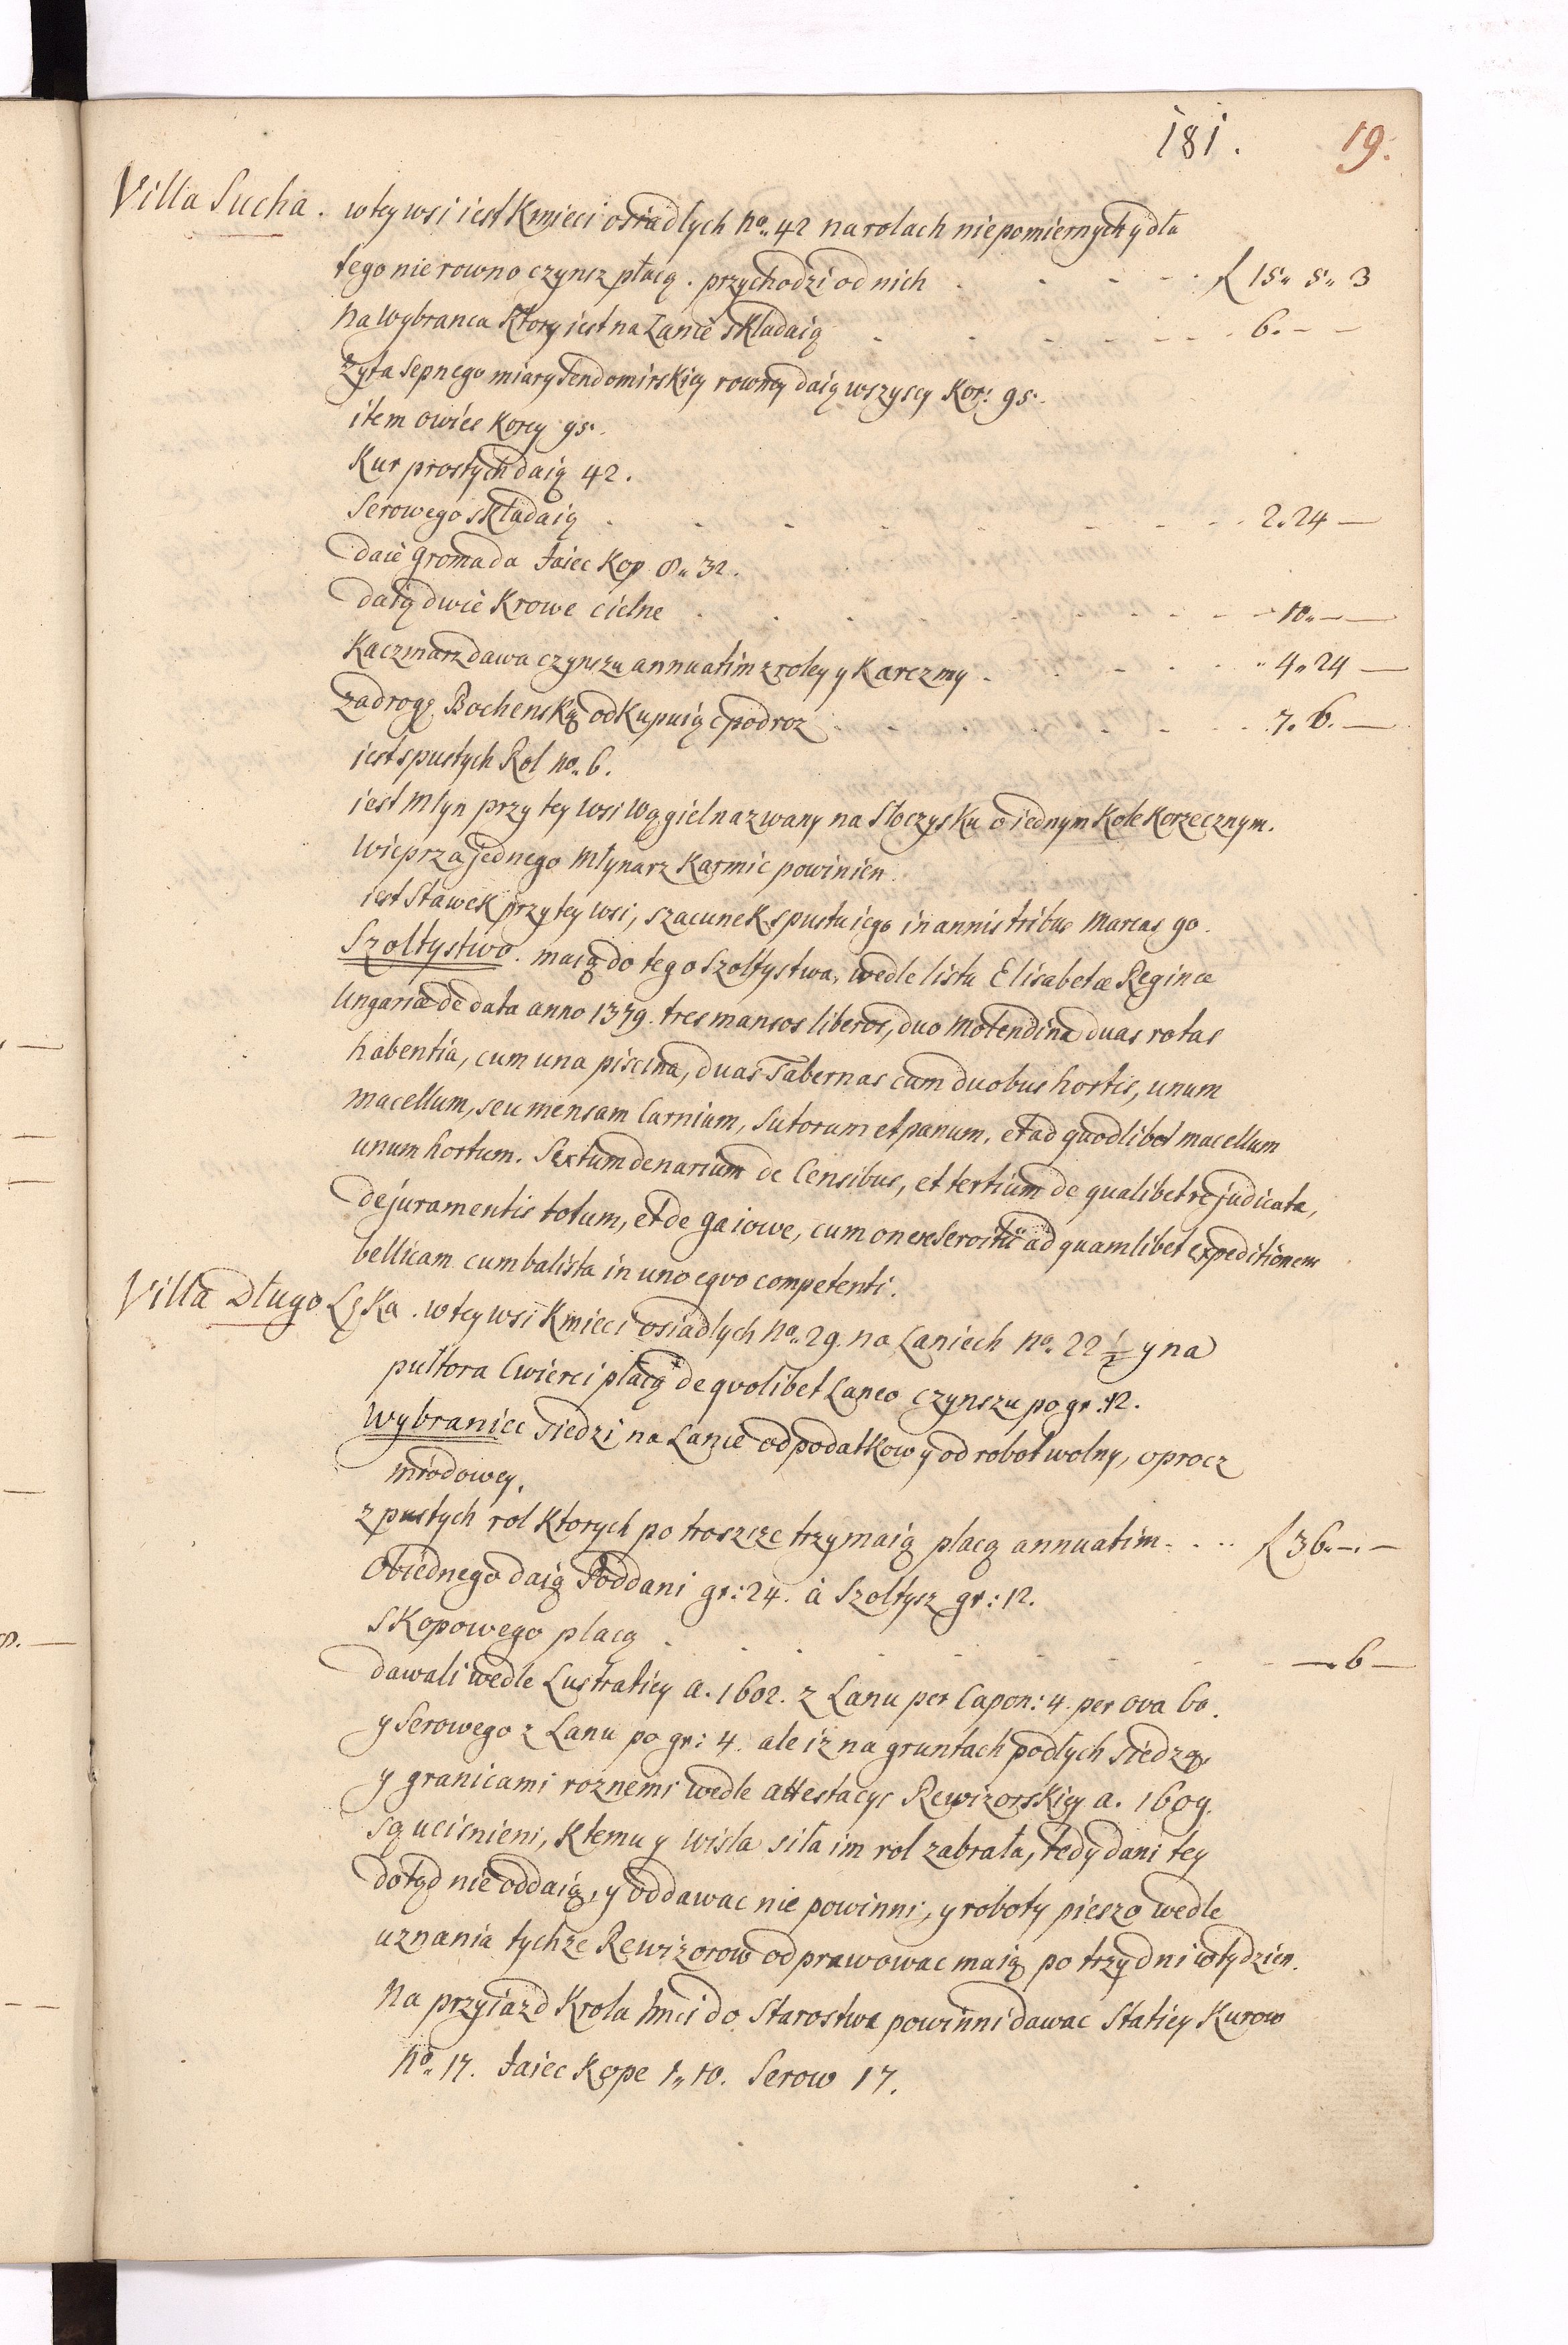 181. 19.
Villa Sucha. w tey wsi iest Kmieci osiadlych No. 42 na rolach niepomiernych y dla
tego nie rowno czynsz płacą. przychodzi od nich - - - - f 15" 5" 3
na Wybranca Ktory iest na Łanie składaią - - - - - 6. - -
Zyta Sepnego miary Sendomirskiey rowney daią wszyscy Kor: 95.
item owies Korcy 95.
Kur prostych daią 42.
Serowego składaią - - - - - - - 2.24 —
daie gromada Jaiec Kop 8" 32.
daią dwie Krowe cielne - - - - - - - 10" — —
Kaczmarz dawa czynszu annuatim z roley y Karczmy - - - - 4" 24 —
za drogę Bochenską odkupuią podroz - - - - - 7. 6. —
iest pustych Rol No. 6.
iest Młyn przy tey wsi Wągiel nazwany na Stoczysku o iednym Kole Korzecznym.
wieprza jednego Młynarz Karmic powinien.
iest Stawek przy tey wsi, szacunek spustu iego in annis tribus Marcas 90.
Szoltystwo. maią do tego Szoltystwa, wedle listu Elisabetæ Reginæ
Ungariæ de data anno 1379. tres mansos liberos, duo Molendina duas rotas
habentia, cum una piscina, duas Tabernas cum duobus hortis, unum
macellum, seu mensam Carnium, Sutorum et panum, et ad quodlibet macellum
unum hortum. Sextum denarium de Censibus, et tertium de qualibet re judicata,
de juramentis totum, et de gaiowe, cum onere servitii ad quamlibet expeditionem
bellicam cum balista in uno eqvo competenti.
Villa Długo Lęka. w tey wsi Kmieci osiadlych No. 29. na Łaniech No. 22 1/2 y na
pułtora Cwierci płacą de qvolibet Laneo czynszu po gr: 12.
Wybraniec siedzi na Łanie od podatkow y od robot wolny, oprocz
miodowey.
z pustych rol Ktorych po troszcze trzymaią placą annuatim - . .. f 36. —. —
Obiednego daią Poddani gr: 24. à Szoltysz gr: 12.
Skopowego placą - - - - - - — 6 —
dawali wedle Lustratiey a. 1602. z Łanu per Capon: 4. per ova 60.
y Serowego z Łanu po gr: 4. ale iz na gruntach podłych siedzą
y granicami roznemi wedle attestacyi Rewizorskiey a. 1609.
są ucisnieni, Ktemu y Wisła siła im rol zabrała, tedy dani tey
dotąd nie oddaią, y oddawac nie powinni, y roboty pieszo wedle
uznania tychze Rewizorow odprawowac maią po trzy dni w tydzien.
Na przyiazd Krola Jmci do Starostwa powinni dawac Statiey Kurow
No. 17. Jaiec Kope 1" 10. Serow 17.